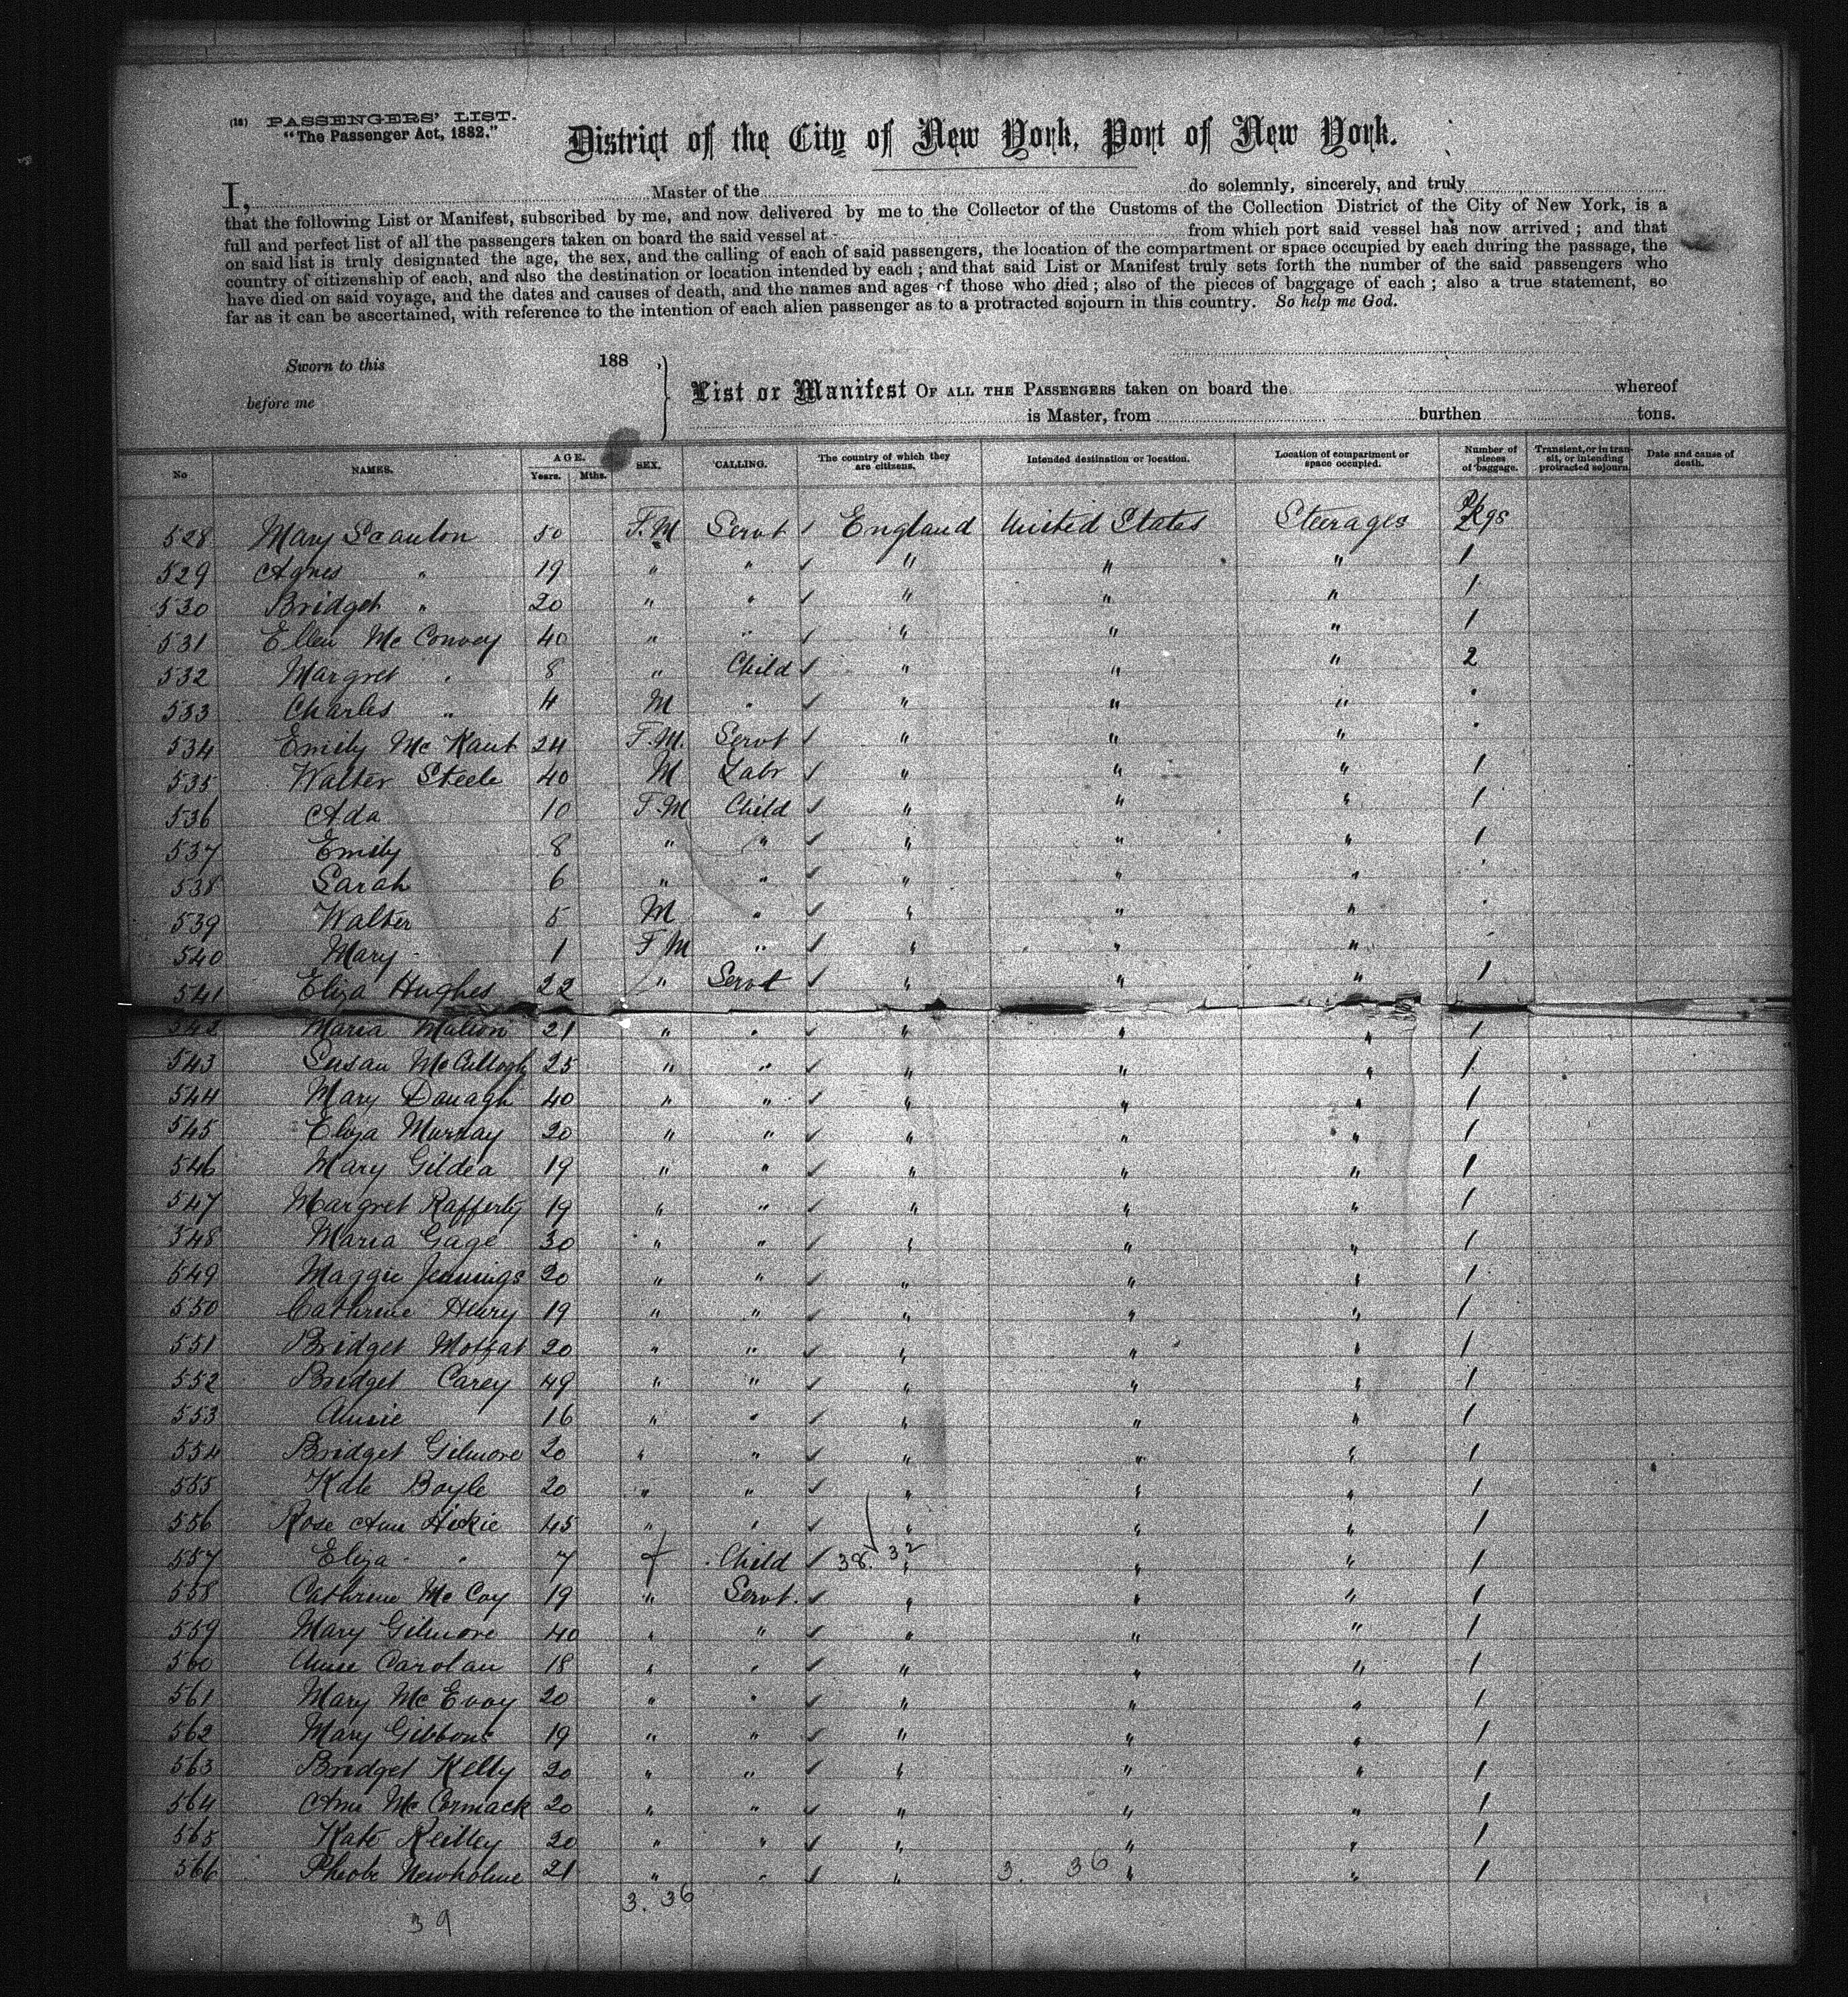 (18) PASSENGERS' LIST.
"The Passenger Act, 1882."
District of the City of New York, Port of New York.
I, Master of the do solemnly, sincerely, and truly
that the following List or Manifest, subscribed by me, and now delivered by me to the Collector of the Customs of the Collection District of the City of New York, is a
full and perfect list of all the passengers taken on board the said vessel at from which port said vessel has now arrived; and that
on said list is truly designated the age, the sex, and the calling of each of said passengers, the location of the compartment or space occupied by each during the passage, the
country of citizenship of each, and also the destination or location intended by each; and that said List or Manifest truly sets forth the number of the said passengers who
have died on said voyage, and the dates and causes of death, and the names and ages of those who died; also of the pieces of baggage of each; also a true statement, so
far as it can be ascertained, with reference to the intention of each alien passenger as to a protracted sojourn in this country. So help me God.
Sworn to this 188
before me
List or Manifest OF ALL THE PASSENGERS taken on board the whereof
is Master, from burthen tons.
No NAMES. AGE. Years. Mths. SEX. CALLING. The country of which they are citizens. Intended destination or location. Location of compartment or space occupied. Number of pieces of baggage. Transient, or in transit, or intending protracted sojourn. Date and cause of death.
528 Mary Scanlon 50 F.M Servt ✓ England United States Steerages Pkgs
529 Agnes " 19 " " ✓ " " " 1
530 Bridget " 20 " " ✓ " " " 1
531 Ellen Mc Convey 40 " " ✓ " " " 1
532 Margret " 8 " Child ✓ " " " 2
533 Charles " 4 M " ✓ " " " "
534 Emily Mc Kant 24 F.M. Servt ✓ " " " "
535 Walter Steele 40 M Labr ✓ " " " 1
536 Ada 10 F.M Child ✓ " " " 1
537 Emily 8 " " ✓ " " " 1
538 Sarah 6 " " ✓ " " "
539 Walter 5 M " ✓ " " "
540 Mary 1 F M " ✓ " " "
541 Eliza Hughes 22 " Servt ✓ " " " 1
542 Maria 21 " " ✓ " " " 1
543 Susan McCullogh 25 " " ✓ " " " 1
544 Mary Donagh 40 " " ✓ " " " 1
545 Eliza Murray 20 " " ✓ " " " 1
546 Mary Gildea 19 " " ✓ " " " 1
547 Margret Rafferty 19 " " ✓ " " " 1
548 Maria Gage 30 " " ✓ " " " 1
549 Maggie Jennings 20 " " ✓ " " " 1
550 Cathrine Henry 19 " " ✓ " " " 1
551 Bridget Moffat 20 " " ✓ " " " 1
552 Bridget Carey 49 " " ✓ " " " 1
553 Annie 16 " " ✓ " " " 1
554 Bridget Gilmore 20 " " ✓ " " " 1
555 Kate Boyle 20 " " ✓ " " " 1
556 Rose Ann Hickie 45 " " ✓ " " " 1
557 Eliza " 7 f Child ✓ 38. 32 " " " 1
558 Cathrine Mc Coy 19 " Servt. ✓ " " " 1
559 Mary Gilmore 40 " " ✓ " " " 1
560 Annie Carolan 18 " " ✓ " " " 1
561 Mary Mc Evoy 20 " " ✓ " " " 1
562 Mary Gibbons 19 " " ✓ " " " 1
563 Bridget Kelly 20 " " ✓ " " " 1
564 Ann Mc Cormack 20 " " ✓ " " " 1
565 Kate Reilley 20 " " ✓ " " " 1
566 Pheobe Newholme 21 " " ✓ " 3. 36 " " 1
3. 36
39